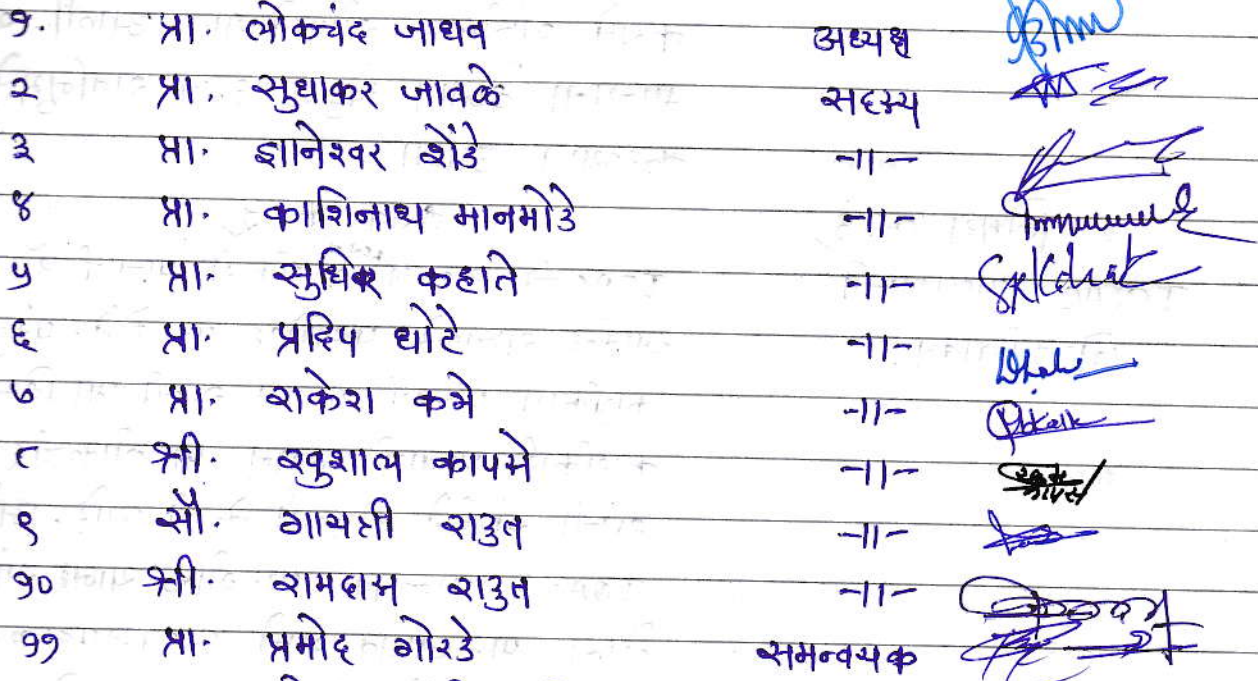 १. प्रा. लोकचंद जाधव अध्यक्ष
२ प्रा. सुधाकर जावळे सदस्य
३ प्रा. ज्ञानेश्वर शेंडे -11-
४ प्रा. काशिनाथ मानमोडे -11-
५ प्रा. सुधिर कहाते -11-
६ प्रा. प्रदिप धोटे -11-
७ प्रा. राकेश कभे -11-
८ श्री. खुशाल कापसे -11-
९ सौ. गायत्री राउत -11-
१० श्री. रामदास राउत -11-
११ प्रा. प्रमोद गोरडे समन्वयक